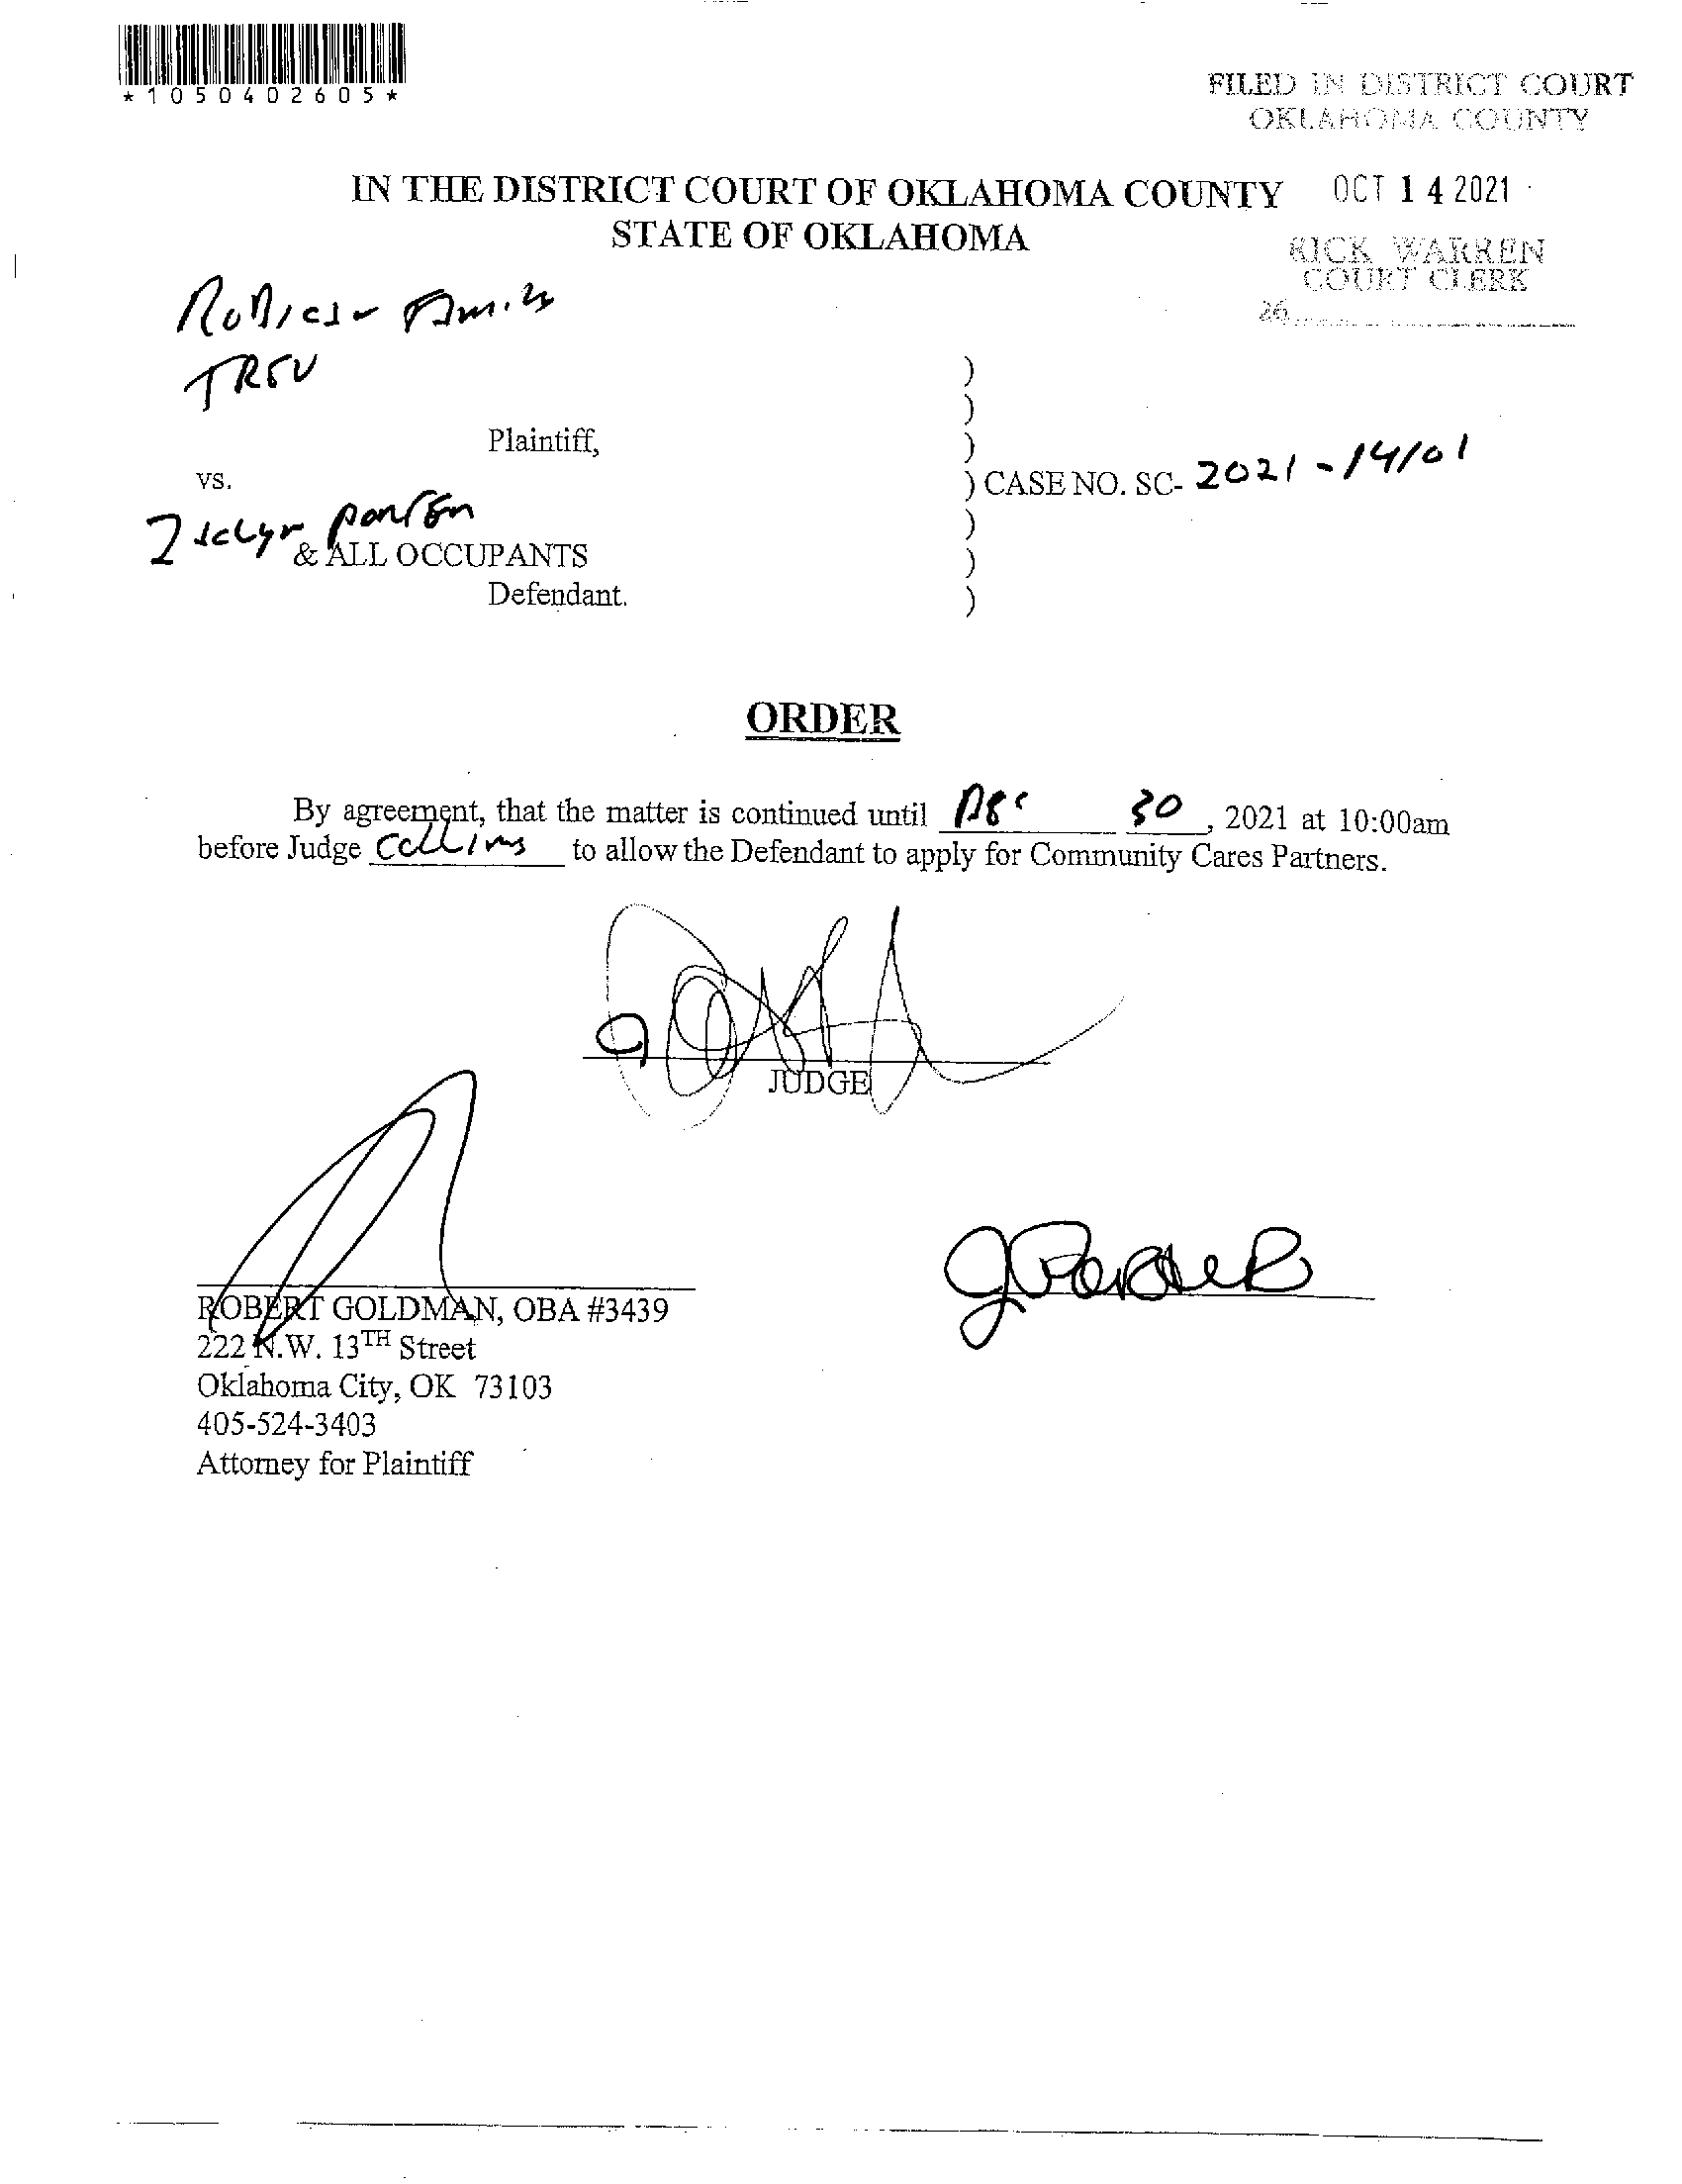 *1050402605*
FILED IN DISTRICT COURT
OKLAHOMA COUNTY
IN THE DISTRICT COURT OF OKLAHOMA COUNTY
OCT 14 2021
STATE OF OKLAHOMA
RICK WARREN
COURT CLERK
26
Plaintiff,
vs.
) CASE NO. SC- 2021-14101
& ALL OCCUPANTS
Defendant.
ORDER
By agreement, that the matter is continued until 30, 2021 at 10:00am
before Judge Collins to allow the Defendant to apply for Community Cares Partners.
JUDGE
ROBERT GOLDMAN, OBA #3439
222 N.W. 13TH Street
Oklahoma City, OK 73103
405-524-3403
Attorney for Plaintiff